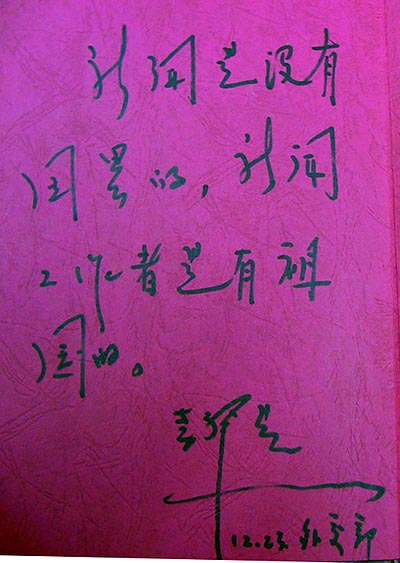 新闻是没有
国界的，新闻
工作者是有祖
国的。
12.23 外交部